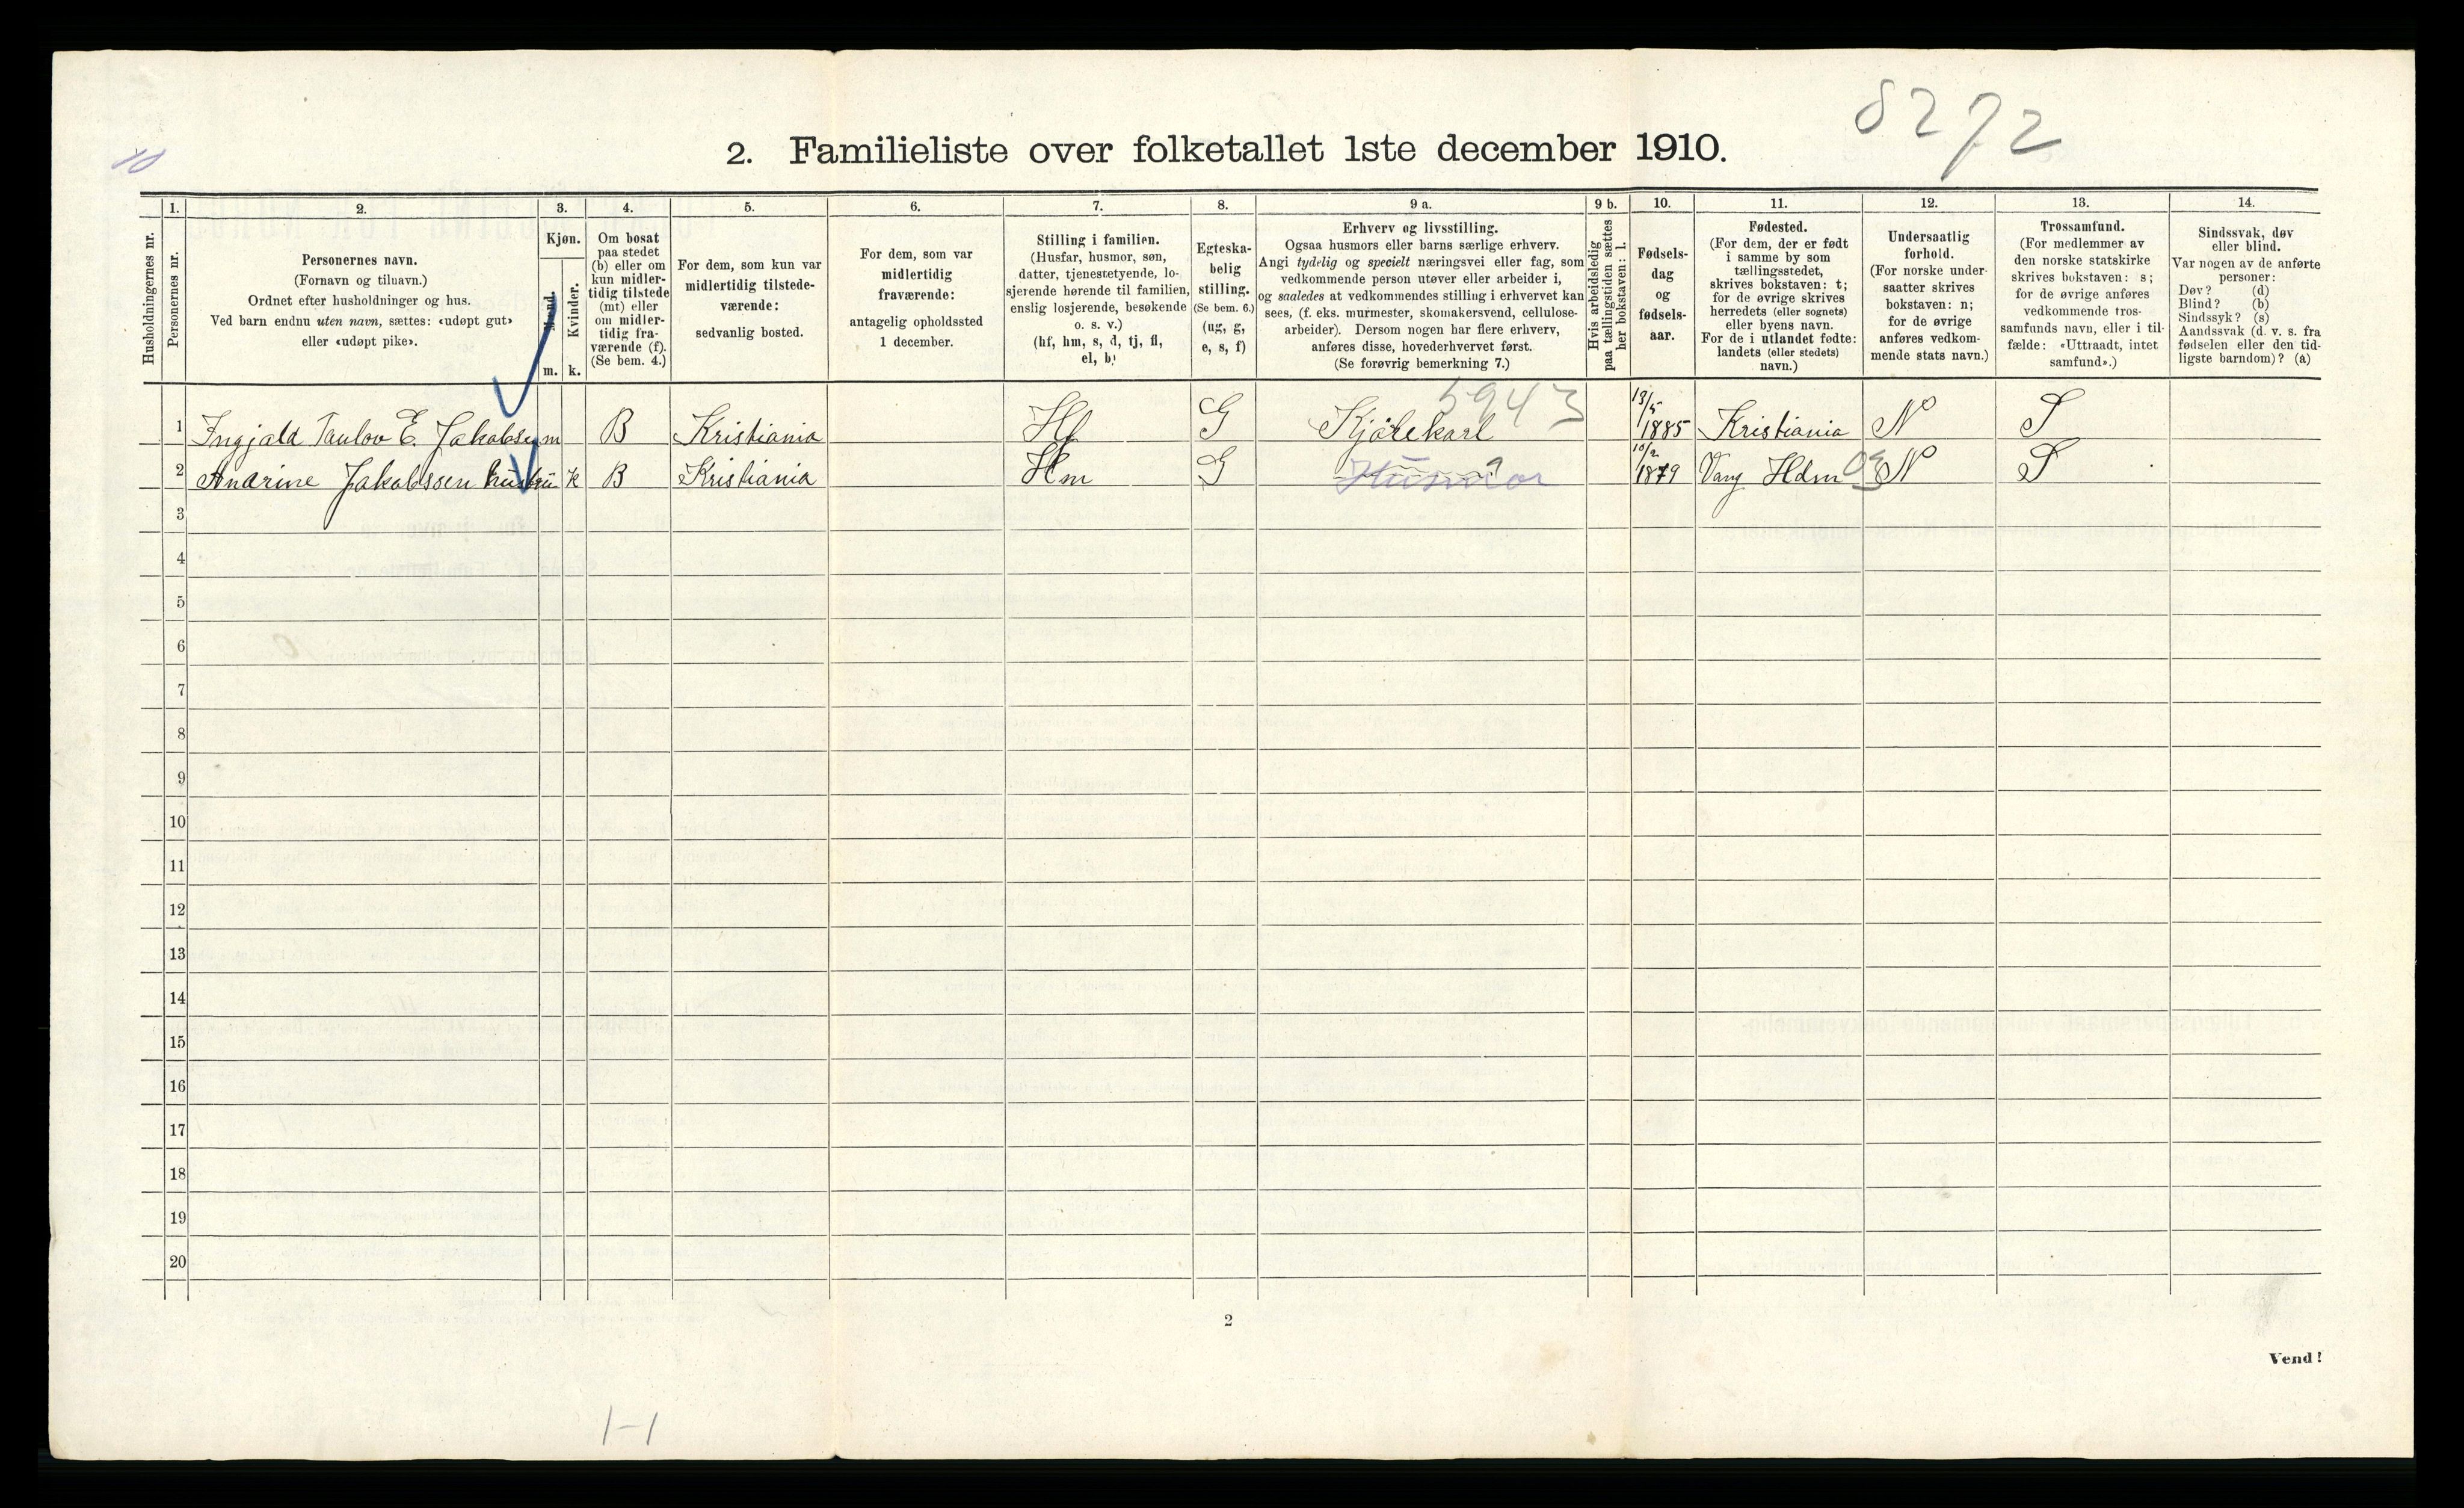 8272
10
2. Familieliste over folketallet 1ste december 1910.
Husholdningernes nr.
1.
Personernes nr.
2.
Personernes navn.
(Fornavn og tilnavn.)
Ordnet efter husholdninger og hus.
Ved barn endnu uten navn, sættes: «udøpt gut»
eller «udøpt pike».
3.
Kjøn.
Mænd.
m.
Kvinder.
k.
4.
Om bosat
paa stedet
(b) eller om
kun midler-
tidig tilstede
(mt) eller
om midler-
tidig fra-
værende (f).
(Se bem. 4.)
5.
For dem, som kun var
midlertidig tilstede-
værende:
sedvanlig bosted.
6.
For dem, som var
midlertidig
fraværende:
antagelig opholdssted
1 december.
7.
Stilling i familien.
(Husfar, husmor, søn,
datter, tjenestetyende, lo-
sjerende hørende til familien,
enslig losjerende, besøkende
o. s. v.)
(hf, hm, s, d, tj, fl,
el, b)
8.
Egteska-
belig
stilling.
(Se bem. 6.)
(ug, g,
e, s, f)
9 a.
Erhverv og livsstilling.
Ogsaa husmors eller barns særlige erhverv.
Angi tydelig og specielt næringsvei eller fag, som
vedkommende person utøver eller arbeider i,
og saaledes at vedkommendes stilling i erhvervet kan
sees, (f. eks. murmester, skomakersvend, cellulose-
arbeider). Dersom nogen har flere erhverv,
anføres disse, hovederhvervet først.
(Se forøvrig bemerkning 7.)
9 b.
Hvis arbeidsledig
paa tællingstiden sættes
her bokstaven: l.
10.
Fødsels-
dag
og
fødsels-
aar.
11.
Fødested.
(For dem, der er født
i samme by som
tællingsstedet,
skrives bokstaven: t;
for de øvrige skrives
herredets (eller sognets)
eller byens navn.
For de i utlandet fødte:
landets (eller stedets)
navn.)
12.
Undersaatlig
forhold.
(For norske under-
saatter skrives
bokstaven: n;
for de øvrige
anføres vedkom-
mende stats navn.)
13.
Trossamfund.
(For medlemmer av
den norske statskirke
skrives bokstaven: s;
for de øvrige anføres
vedkommende tros-
samfunds navn, eller i til-
fælde: «Uttraadt, intet
samfund».)
14.
Sindssvak, døv
eller blind.
Var nogen av de anførte
personer:
Døv? (d)
Blind? (b)
Sindssyk? (s)
Aandssvak (d. v. s. fra
fødselen eller den tid-
ligste barndom)? (a)
5943
1 Ingjald Taulov E. Jakobsen m B Kristiania Hf G Kjørekarl 13/5 1885 Kristiania N S
2 Anarine Jakobssen hustru k B Kristiania Hm G Husmor 10/2 1879 Vang Hdm 03 N S
3
4
5
6
7
8
9
10
11
12
13
14
15
16
17
18
19
20
2
Vend!
1-1